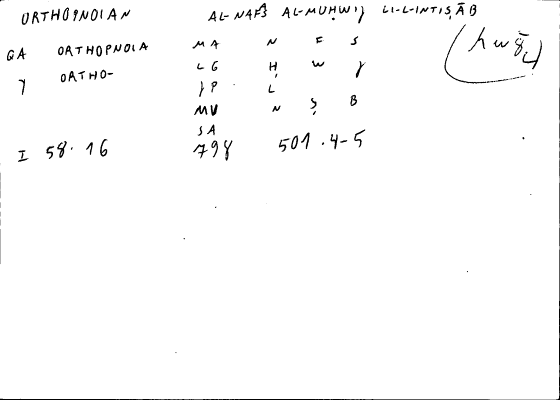 ORTHOPNOIAN AL-NAFS AL-MUḤWIJ LI-L-INTIṢĀB
GA ORTHOPNOIA MA N F S
Y ORTHO- LG Ḥ W J
JP L
MU N Ṣ B
SA
I 58. 16 798 501.4-5